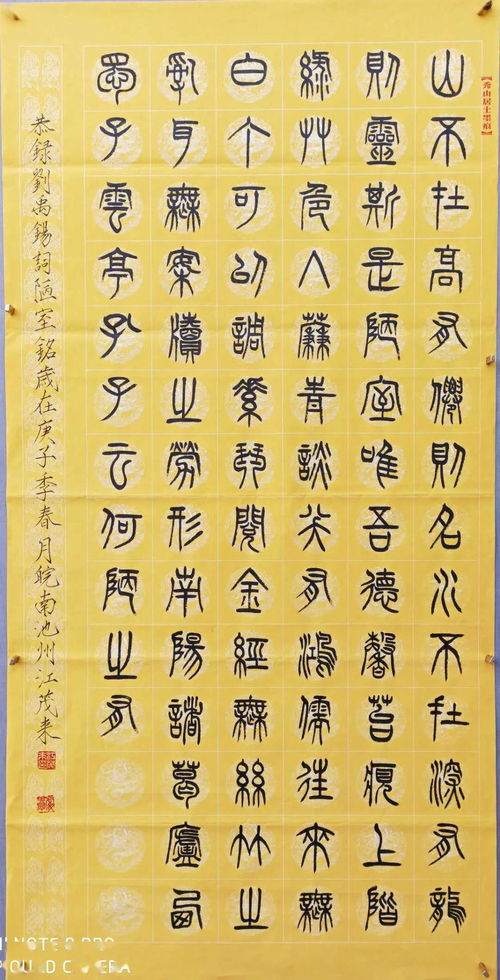 【秀山居士墨痕】
山不在高有僊則名水不在深有龍
則靈斯是陋室唯吾德馨苔痕上階
綠艸色入簾青談笑有鴻儒往來無
白丁可以調素琴閱金經無絲竹之
亂耳無案牘之勞形南陽諸葛廬西
蜀子雲亭孔子云何陋之有
恭録劉禹錫詞陋室銘歲在庚子季春月皖南池州江茂来
NOTE 8 PRO